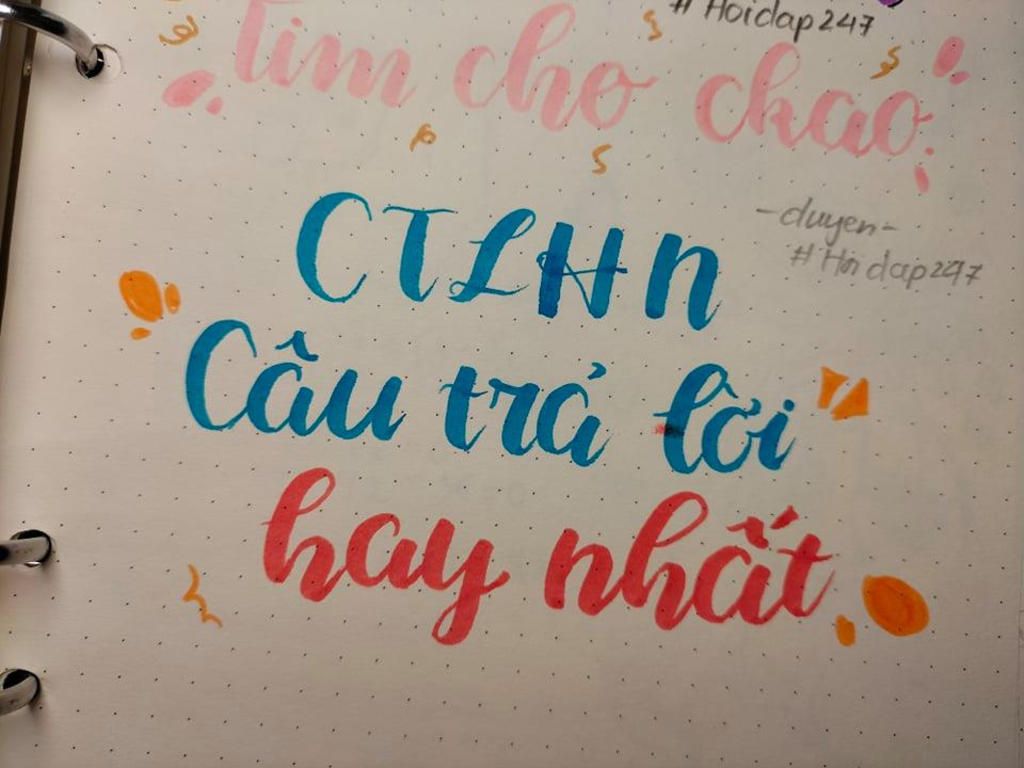 #Hoidap247
tim cho ckao.
-duyen-
#Hoidap247
CTLHN
Câu trả lời
hay nhất